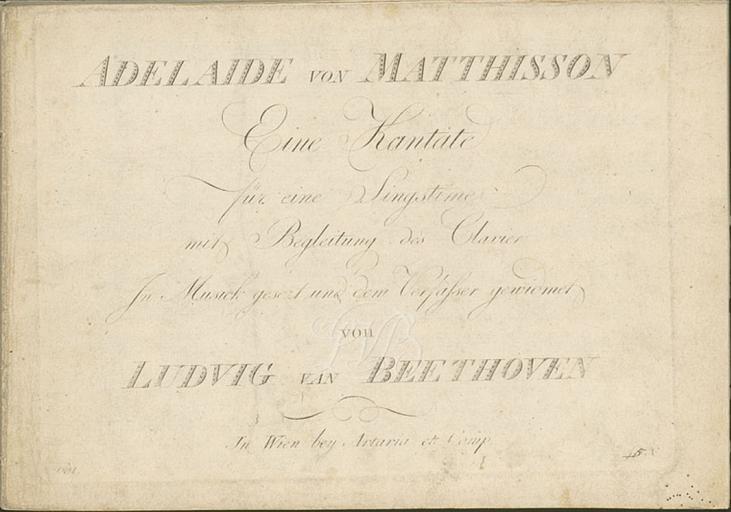 ADELAIDE VON MATTHISSON
Eine Kantate
für eine Singstime
mit Begleitung des Clavier
In Musick gesezt und dem Verfasser gewidmet
VON
LUDVIG VAN BEETHOVEN
In Wien bey Artaria et Comp.